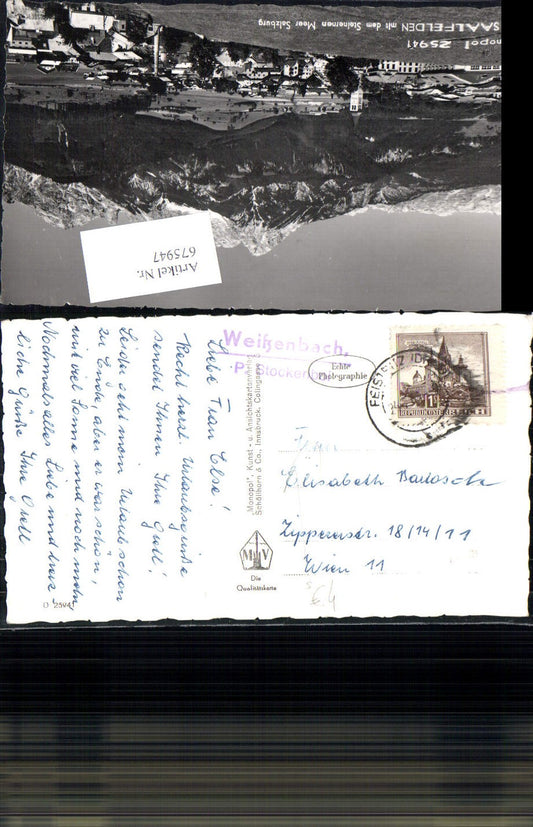 SAALFELDEN mit dem Steinernen Meer Salzburg
Monopol 25941
Artikel Nr.
675947
Liebe Frau Else!
Recht herzl. Urlaubsgrüße
sendet Ihnen Ihre Gretl!
Leider geht mein Urlaub schon
zu Ende, aber es war schön,
mit viel Sonne und noch mehr
Nochmals alles Liebe und herz
liche Grüße Ihre Gretl
O 2594
Weißenbach,
P. Stockenboi
"Monopol", Kunst- u. Ansichtskartenverlag
Schöllhorn & Co., Innsbruck, Colingasse 3
Echte
Photographie
MV
Die
Qualitätskarte
FEISTRITZ
REPUBLIK ÖSTERREICH
Elisabeth
Zippererstr. 18/14/11
Wien 11